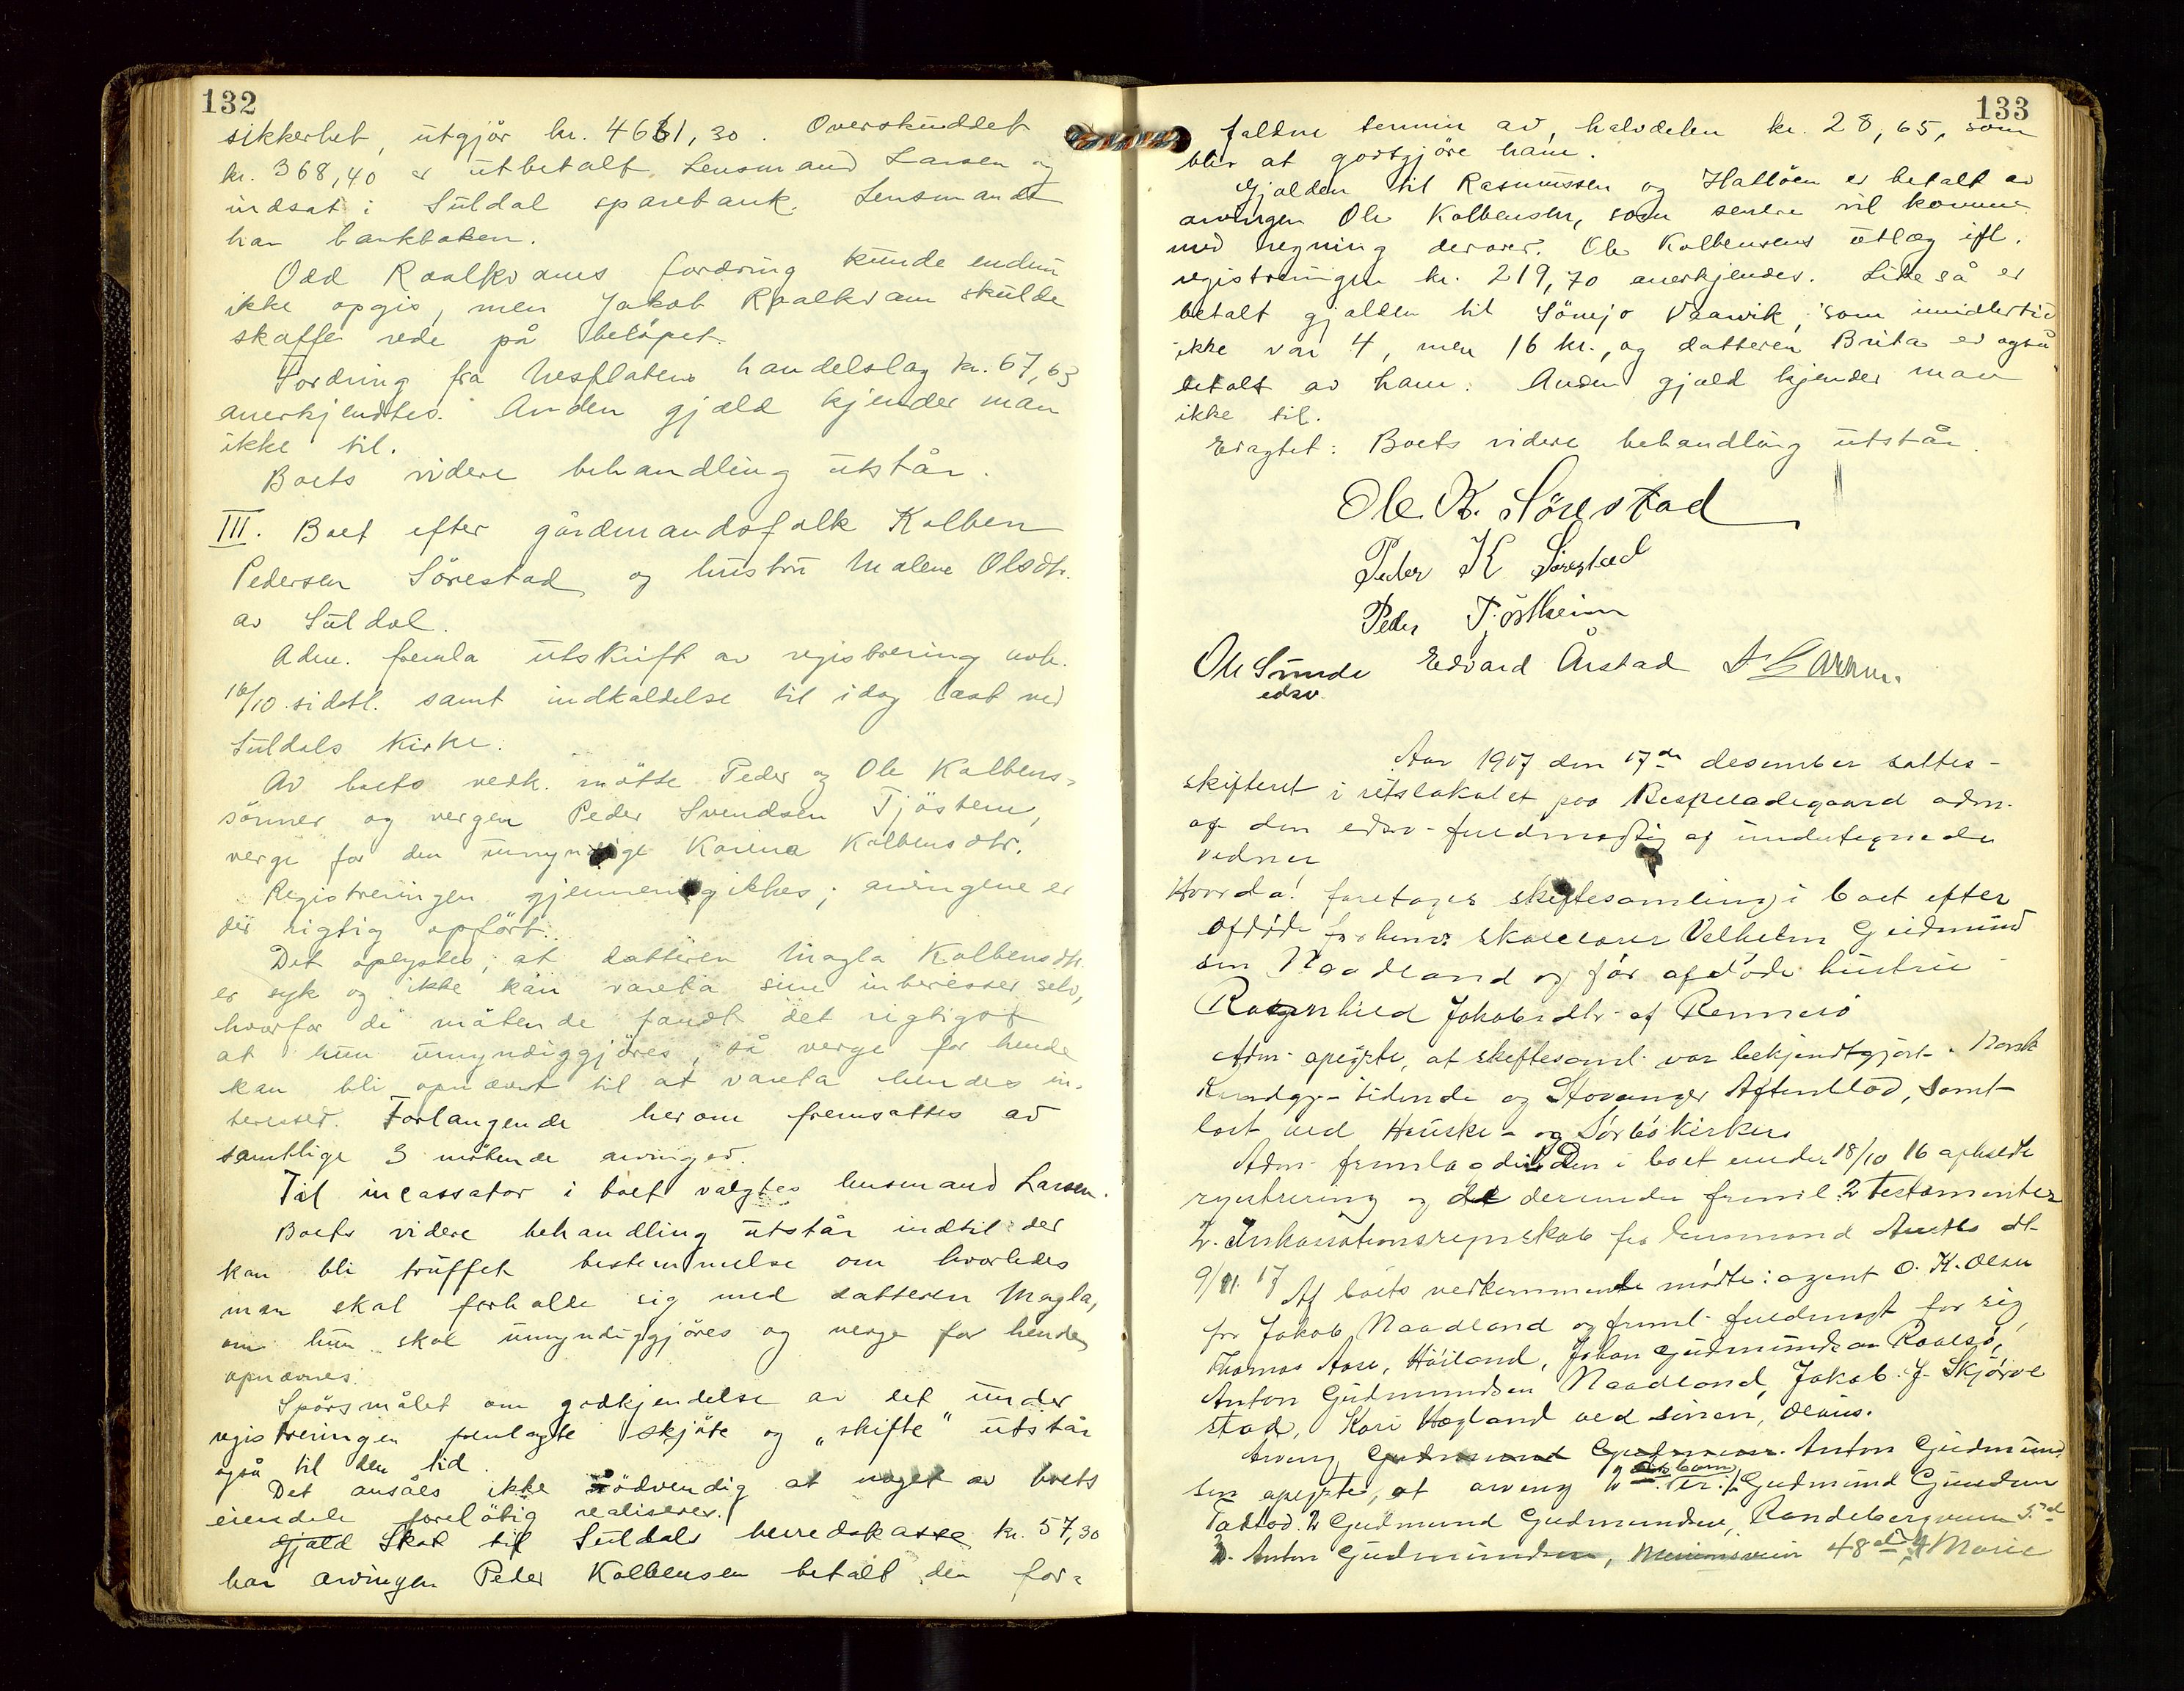 132
sikkerhet, utgjör kr. 4661,30. Overskuddet
kr. 368,40 er utbetalt lensmand Larsen og
indsat i Suldal sparebank. Lensmandt
har bankboken.
Odd Roalkvams fordring kunde endnu
ikke opgis, men Jakob Roalkvam skulde
skaffe rede på belöpet.
Fordring fra Nesflatens handelslag kr. 67,63
anerkjendtes. Anden gjæld kjender man
ikke til.
Boets videre behandling utstår.
III. Boet efter gårdmandsfolk Kolben
Pedersen Sörestad og hustru Malene Olsdtr.
av Suldal.
Adm. fremla utskrift av registrering avh.
16/10 sidstl. samt indkaldelse til idag læst ved
Suldals kirke.
Av boets vedk. mötte Peder og Ole Kolbens-
sönner og vergen Peder Svendsen Tjöstem,
verge for den umyndige Karina Kolbensdtr.
Registreringen gjennemgikkes; arvingene er
der rigtig opfört.
Det oplystes, at datteren Magla Kolbensdtr.
er syk og ikke kan vareta sine interesser selv,
hvorfor de mötende fandt det rigtigst
at hun umyndiggjöres, så verge for hende
kan bli opnævnt til at vareta hendes in-
teresser. Forlangende herom fremsattes av
samtlige 3 mötende arvinger.
Til incassator i boet valgtes lensmand Larsen.
Boets videre behandling utstår indtil der
kan bli truffet bestemmelse om hvorledes
man skal forholde sig med datteren Magla,
om hun skal umyndiggjöres og verge for hende
opnævnes.
Spörsmålet om godkjendelse av det under
registreringen fremlagte skjöte og „skifte" utstår
også til den tid.
Det ansåes ikke nödvendig at noget av boets
eiendele forelöbig realiseres.
Gjæld Skat til Suldals herredskasse kr. 57,30
har arvingen Peder Kolbensen betalt den for-
133
faldne termin av, halvdelen kr. 28,65, som
blir at godtgjöre ham.
Gjælden til Rasmussen og Hattöen er betalt av
arvingen Ole Kolbensen, som senere vil komme
med regning derover. Ole Kolbensens utlæg ifl.
registreringen kr. 219,70 anerkjendes. Likeså er
betalt gjælden til Vaarvik, som imidlertid
ikke var 4, men 16 kr., og datteren Brita er også
betalt av ham. Anden gjæld kjender man
ikke til.
Eragtet: Boets videre behandling utstår.
Ole K. Sörestad
Peder K Sörestad
Peder T. östheim
Ole Sunde Edvard Årstad Larsen.
edsv.
Aar 1917 den 17de desember sattes
skifteret i retslokalet paa Bespeladegaard adm.
af den edsv. fuldmægtig af undertegnede
vidner
Hvorda! foretages skiftesamling i boet efter
afdöde forhenv. skolelærer Velhelm Gudmund
sen Naadland og før afdöde hustru
Ragnhild Jakobsdtr. af Rennesö
Adm. oplyste, at skiftesaml. var bekjendtgjort i Norsk
Kundgj.- tidende og Stavanger Aftenblad, samt
læst ved Hauske- og Sörbökirker
Adm. fremla den i boet under 18/10 16 afholdte
registrering og de derunder freml. 2 Testamenter
2. Inkassationsregnskab fra lensmand dt.
9/11 17 Af boets vedkommende mödte: agent O. K. Olsen
for Jakob Naadland og freml. fuldmagt for sig,
Thomas Aase, Höiland, Johan Gudmundsen
Anton Gudmundsen Naadland, Jakob J. Skjörve
stad, Kari Hegland ved sönnen, Olaus.
Arving Gudmund Gudmun Anton Gudmund
sen oplyste, at arving Gudmund Gundersen
Tastad. 2 Gudmund Gudmundsen, Randebergveien
3. Anton Gudmundsen, 48 4 Marie